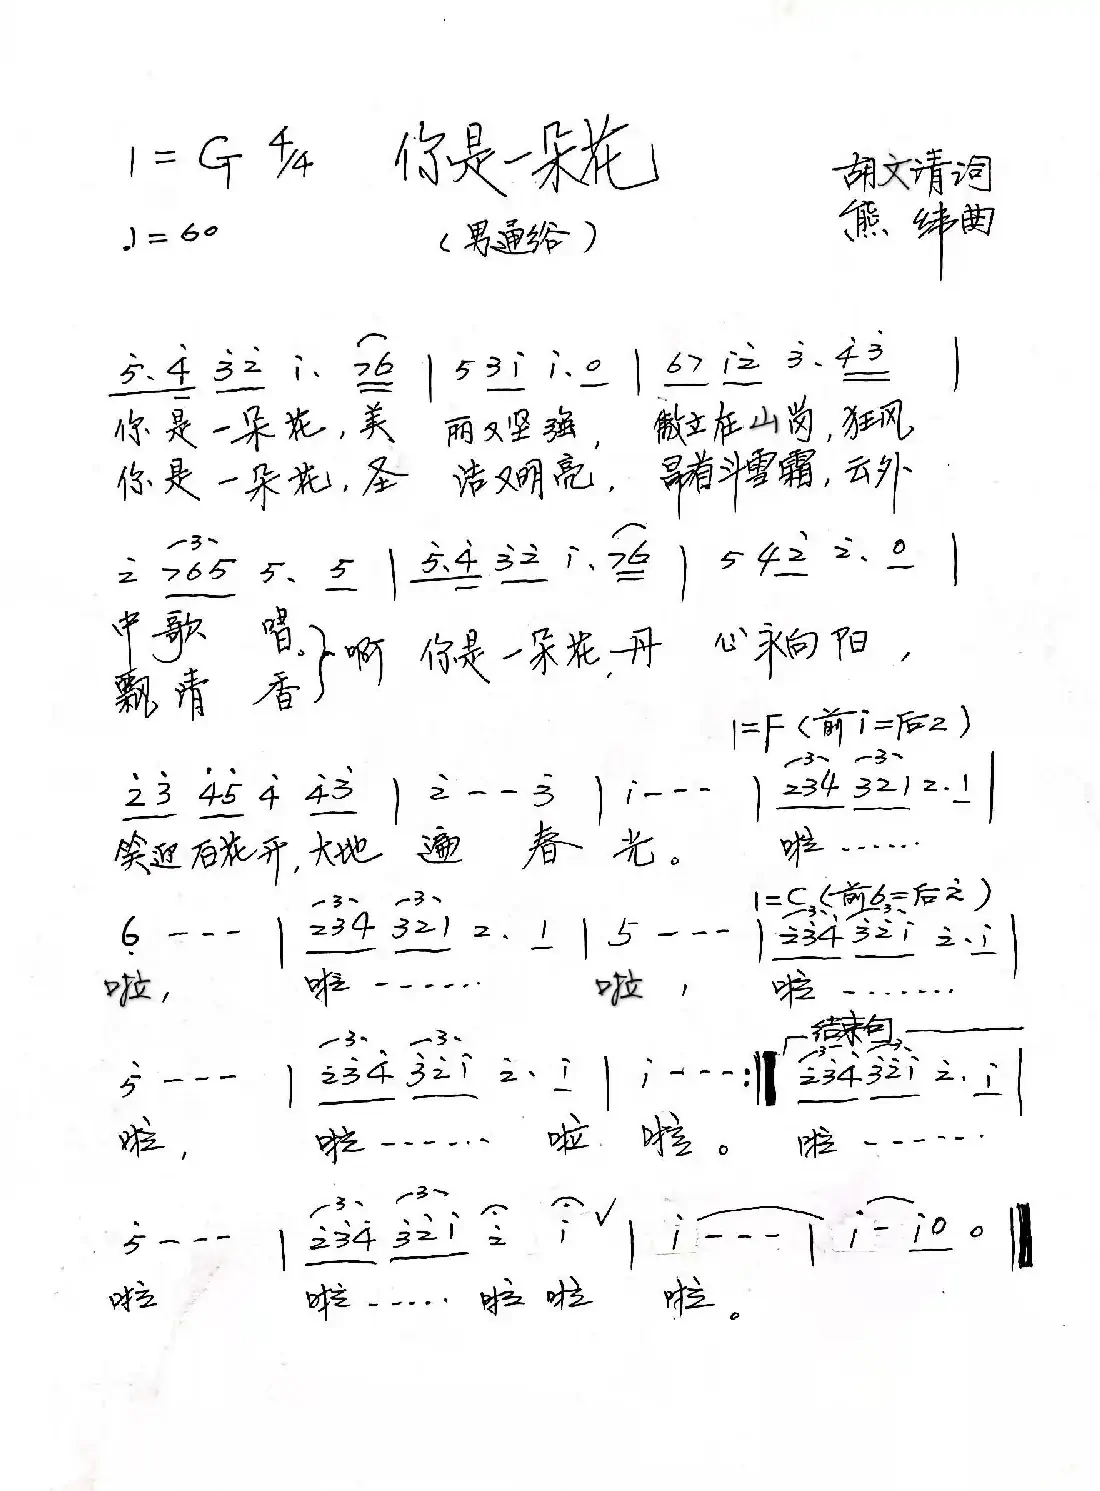 1=G 4/4 你是一朵花 胡文清词
♩=60 (男通俗) 熊 纬曲
5̇. 4̇ 3̇2̇ i. 76 | 5 3i i. 0 | 67 i2̇ 3̇. 4̇3̇ |
你是一朵花,美 丽又坚强, 傲立在山岗,狂风
你是一朵花,圣 洁又明亮, 冒着斗雪霜,云外
2̇ 765 5. 5 | 5̇. 4̇ 3̇2̇ i. 76 | 5 42̇ 2̇. 0 |
中歌 唱。 啊 你是一朵花,丹 心永向阳,
飘清 香
1=F(前i=后2)
2̇3̇ 4̇5̇ 4̇ 4̇3̇ | 2̇ - - 3̇ | i - - - | 234 321 2. 1 |
笑迎百花开,大地 遍 春 光。 啦……
1=C(前6=后2̇)
6̣ - - - | 234 321 2. 1 | 5 - - - | 2̇3̇4̇ 3̇2̇i 2̇. i |
啦, 啦…… 啦, 啦……
结束句
5̇ - - - | 2̇3̇4̇ 3̇2̇i 2̇. i | i - - - :‖ 2̇3̇4̇ 3̇2̇i 2̇. i |
啦, 啦…… 啦 啦。 啦……
5̇ - - - | 2̇3̇4̇ 3̇2̇i 2̇ i ∨ | i - - - | i - i0 0 ‖
啦 啦…… 啦 啦 啦。